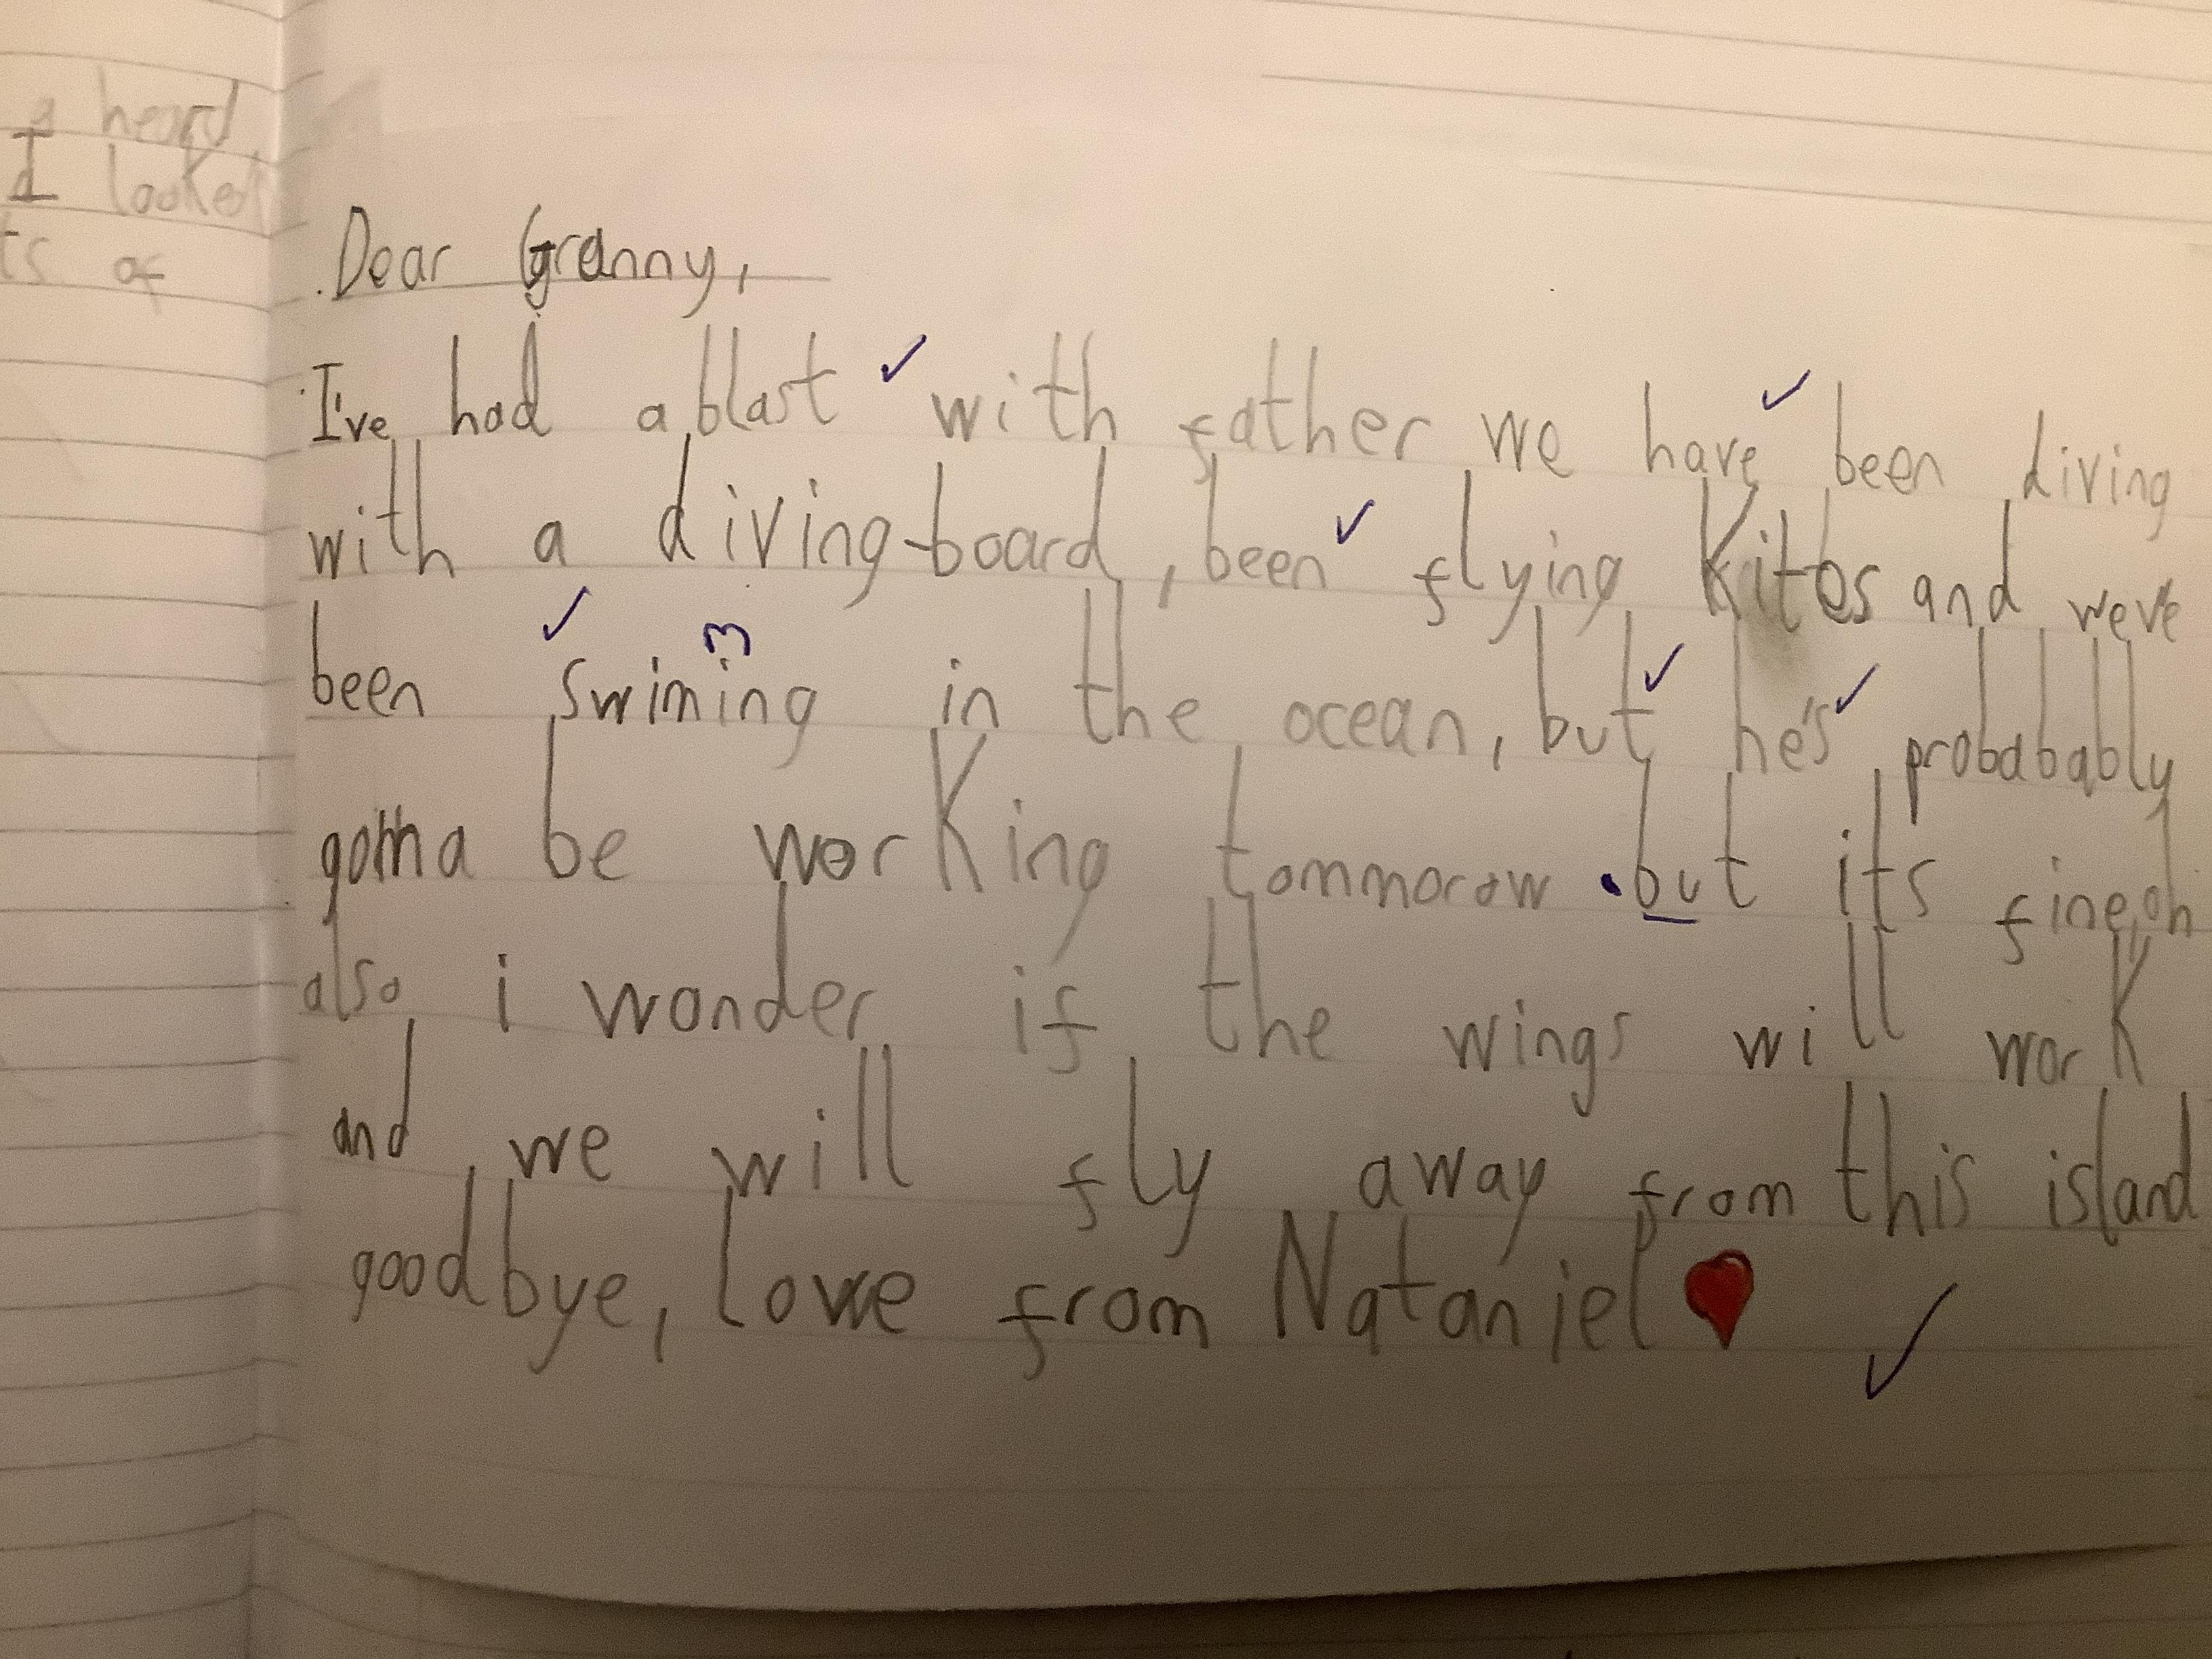 a heard
I looked
ts of
Dear Granny,
I've had a blast with father we have been diving
with a diving-board, been flying Kites and we've
been swiming in the ocean, but he's probabably
m
gonna be working tommorow .but its fine,oh
also i wonder if the wings will work
and we will fly away from this island
goodbye, love from Nataniel